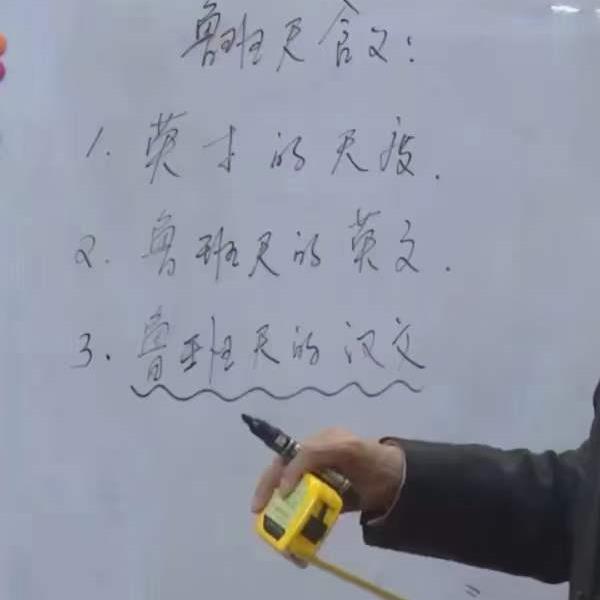 鲁班尺含义:
1. 英寸的尺度.
2. 鲁班尺的英文.
3. 鲁班尺的汉文